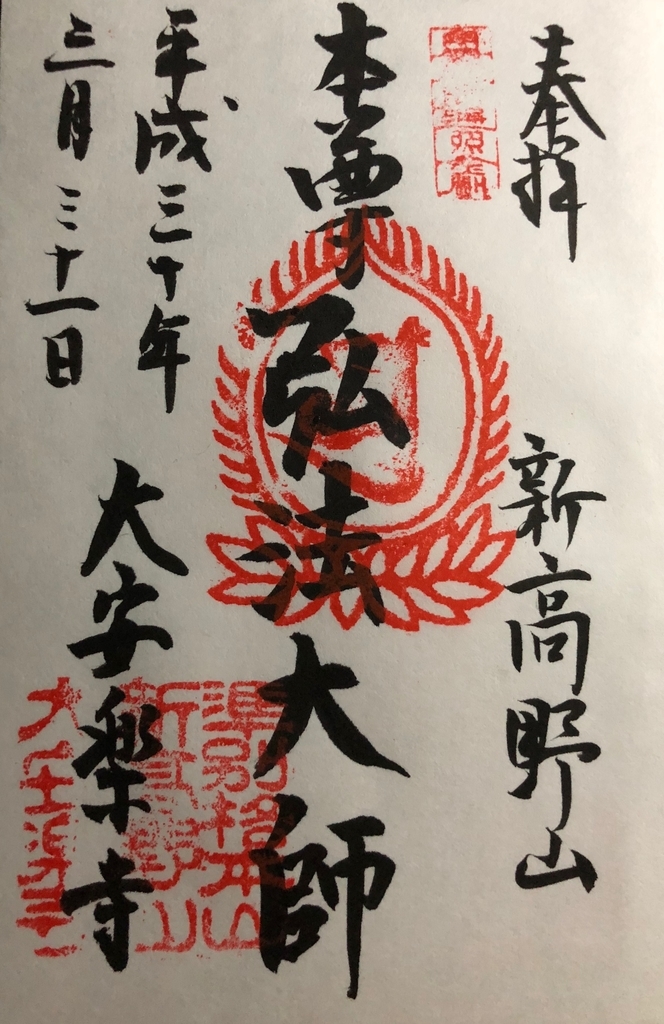 奉拝
新高野山
本尊弘法大師
平成三十年
三月三十一日
大安楽寺
準別格本山
新高野山
大安楽寺